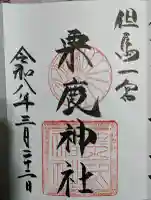 但馬一宮
粟鹿神社
令和八年三月二十二日